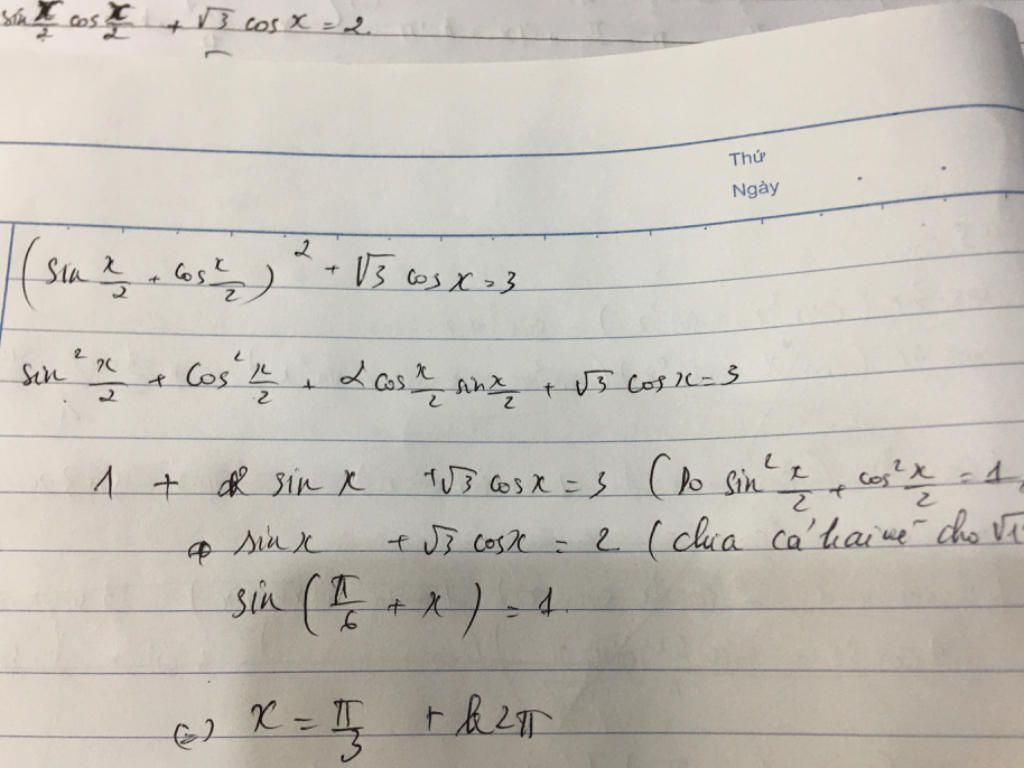 sin x/2 cos x/2 + √3 cos x = 2.
Thứ
Ngày
(sin x/2 + cos x/2)² + √3 cos x = 3
sin² x/2 + cos² x/2 + 2 cos x/2 sin x/2 + √3 cos x = 3
1 + sin x + √3 cos x = 3 (Do sin² x/2 + cos² x/2 = 1
sin x + √3 cos x = 2 (chia cả hai vế cho
sin (π/6 + x) = 1.
(=) x = π/3 + k2π